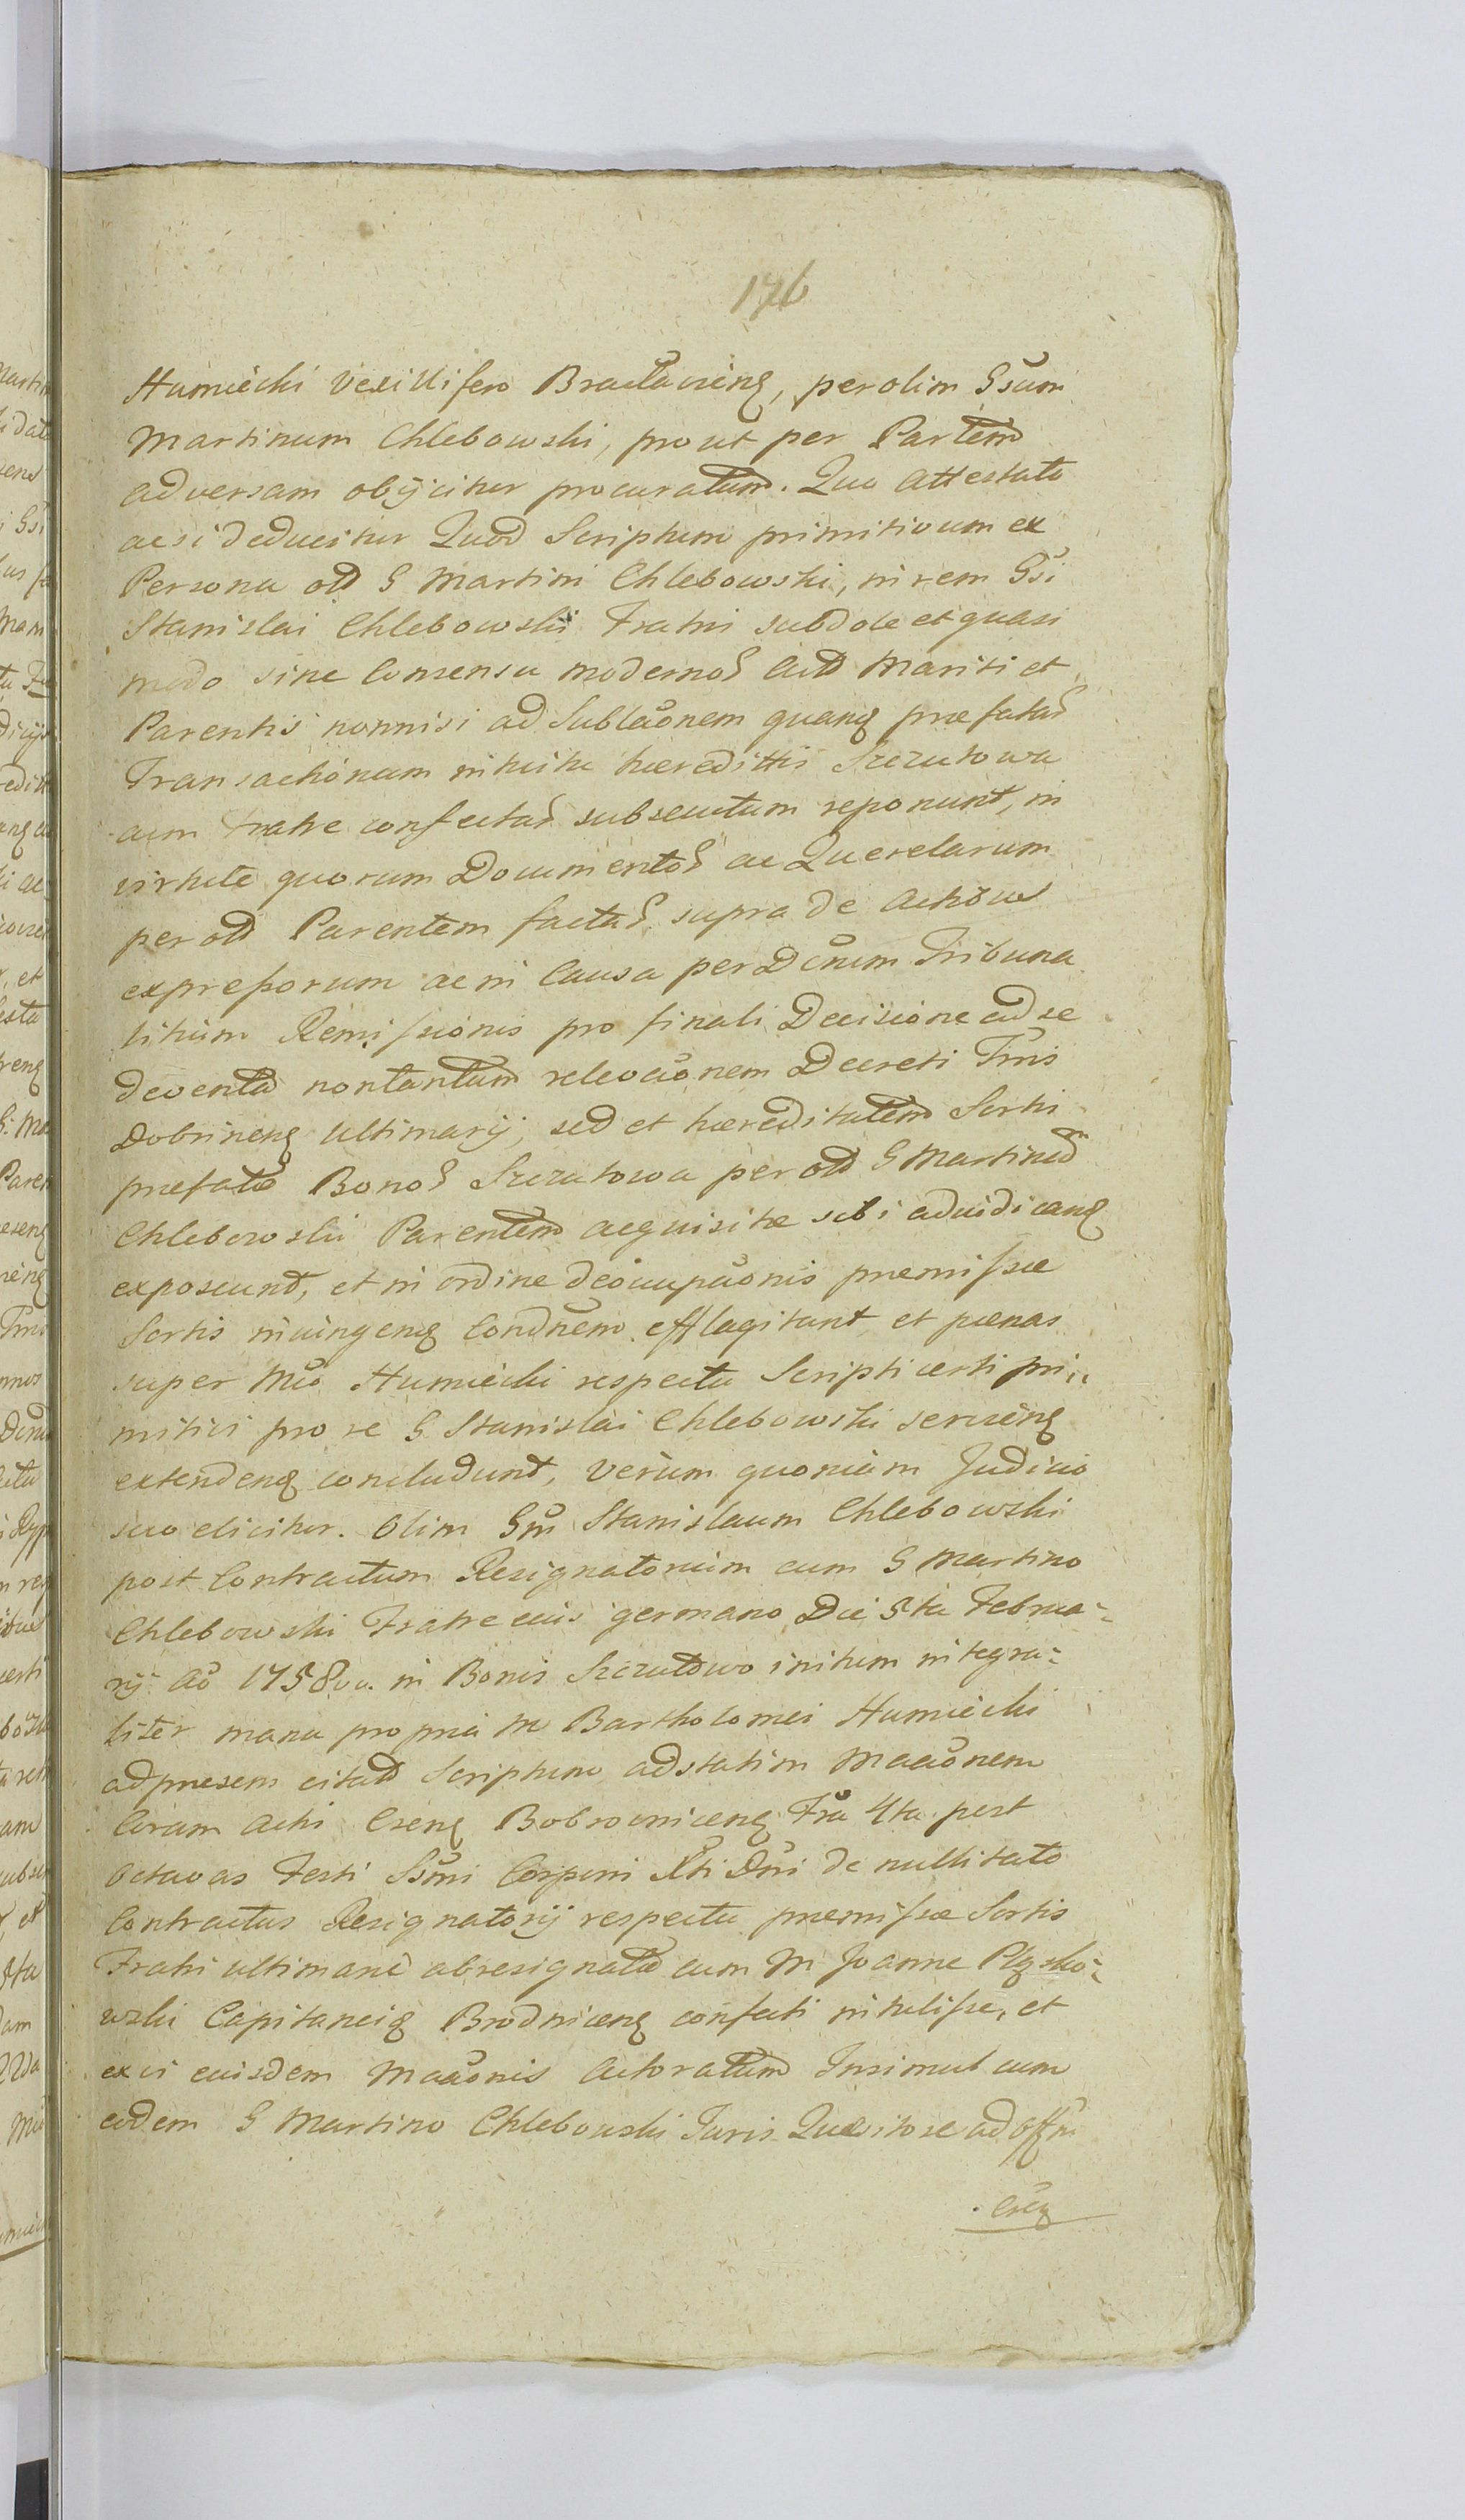 176
Humiecki Vexillifero Bracłavieng, per olim Gsum
Martinum Chlebowski, prout per Partem
adversam obijcitur procuratum. Quo Attestato
acsi deducitur Quod Scriptum primitivum ex
Persona old G Martini Chlebowski, in rem Gsi
Stanislai Chlebowski Fratri subdole et quasi
modo sine Consensu modernos Actō Mariti et
Parentis nonnisi ad Sublaōnem quang præfatas
Transactionum intuitu hæredittis Szczutowa
cum Fratre confectas subsecutum reponunt, in
virtute quorum Documentos ac Querelarum
per old Parentem factas supra de Actibus
expressorum ac in Causa per Dcrum Tribuna
litium Remissionis pro finali Decisione ad se
deventa nontantum relevaōnem Decreti Trris
Dobrineng Ultimarij, sed et hæreditatem Sortis
præfatæ Bonos Szczutowa per old G Martinum
Chlebowski Parentem acquisitæ sibi adiudicang
exposcunt, et in ordine deoccupaōnis præmissæ
Sortis iniungeng Condnem efflagitant et pœnas
super Mco Humiecki respectu Scripti certi pri„
mitivi pro re G Stanislai Chlebowski servieng
extendeng concludunt, Verùm quoniam Judicio
suo elicitur. Olim Gm Stanislaum Chlebowski
post Contractum Resignatorium cum G Martino
Chlebowski Fratre eius germano, Die 5ta Februa-
rij Aō 1758vo. in Bonis Szczutowo initum integra-
liter manu propria M Bartholomei Humiecki
ad præsens citatō Scriptum adstatim Maāonem
Coram Actis Cseng Bobrovniceng Fra 4ta post
Octavas Festi Ssmi Corporis Xti Dni de nullitate
Contractus Resignatorij respectu præmissæ Sortis
Fratri ultimane abresignatæ cum M Joanne Pląsko-
wski Capitaneig Brodniceng confecti intulisse, et
ex vi eiusdem Maāonis Actoratum Insimul cum
eodem G Martino Chlebowski Juris Quæsitore ad Offm
Cseng